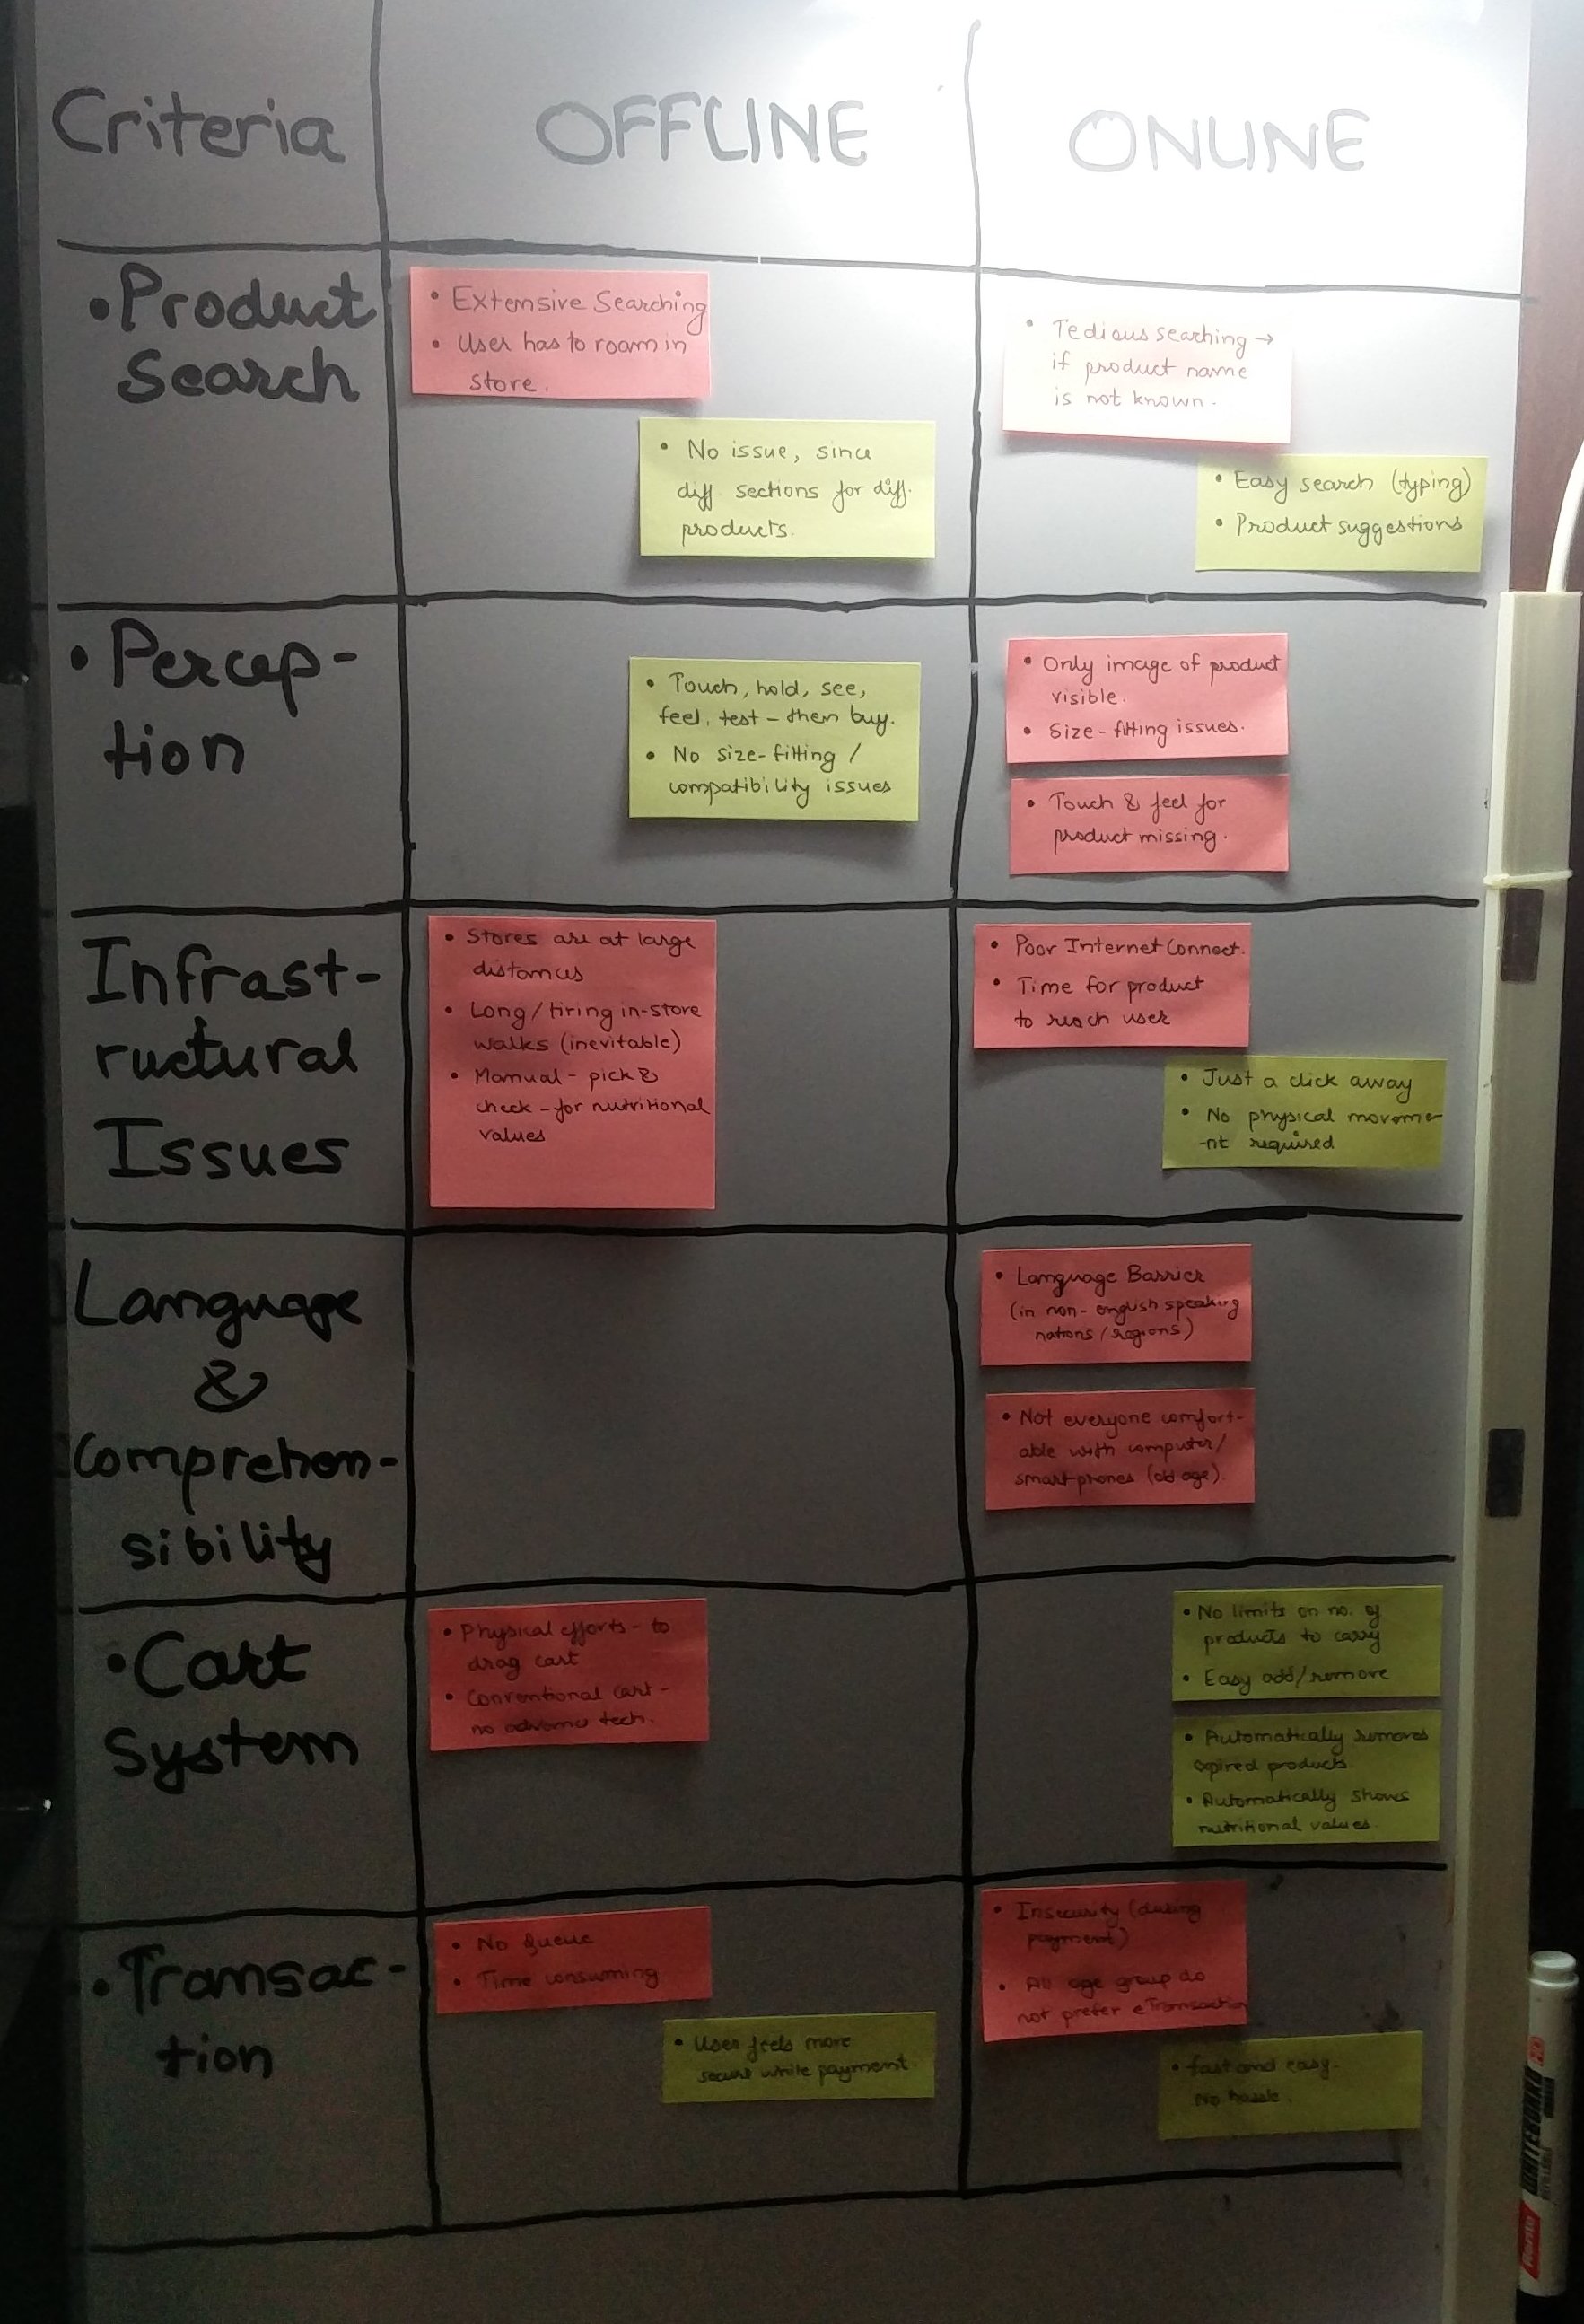 Criteria
OFFLINE
ONLINE
• Product
Search
• Extensive Searching
• User has to roam in
store.
• No issue, since
diff. sections for diff.
products.
• Tedious searching →
if product name
is not known.
• Easy search (typing)
• Product suggestions
• Percep-
tion
• Touch, hold, see,
feel, test – then buy.
• No size-fitting /
compatibility issues
• Only image of product
visible.
• Size-fitting issues.
• Touch & feel for
product missing.
Infrast-
ructural
Issues
• Stores are at large
distances
• Long/tiring in-store
walks (inevitable)
• Manual - pick &
check - for nutritional
values
• Poor Internet Connect.
• Time for product
to reach user
• Just a click away
• No physical moveme-
-nt required
Language
&
Comprehen-
sibility
• Language Barrier
(in non-english speaking
nations/regions)
• Not everyone comfort-
able with computer/
smartphones (old age).
• Cart
System
• Physical efforts - to
drag cart
• Conventional cart -
no advance tech.
• No limits on no. of
products to carry
• Easy add/remove
• Automatically removes
expired products.
• Automatically shows
nutritional values.
• Transac-
tion
• No Queue
• Time consuming
• User feels more
secure while payment.
• Insecurity (during
payment)
• All age group do
not prefer eTransaction
• fast and easy.
No hassle.
WHITEBOARD
REFILLABLE